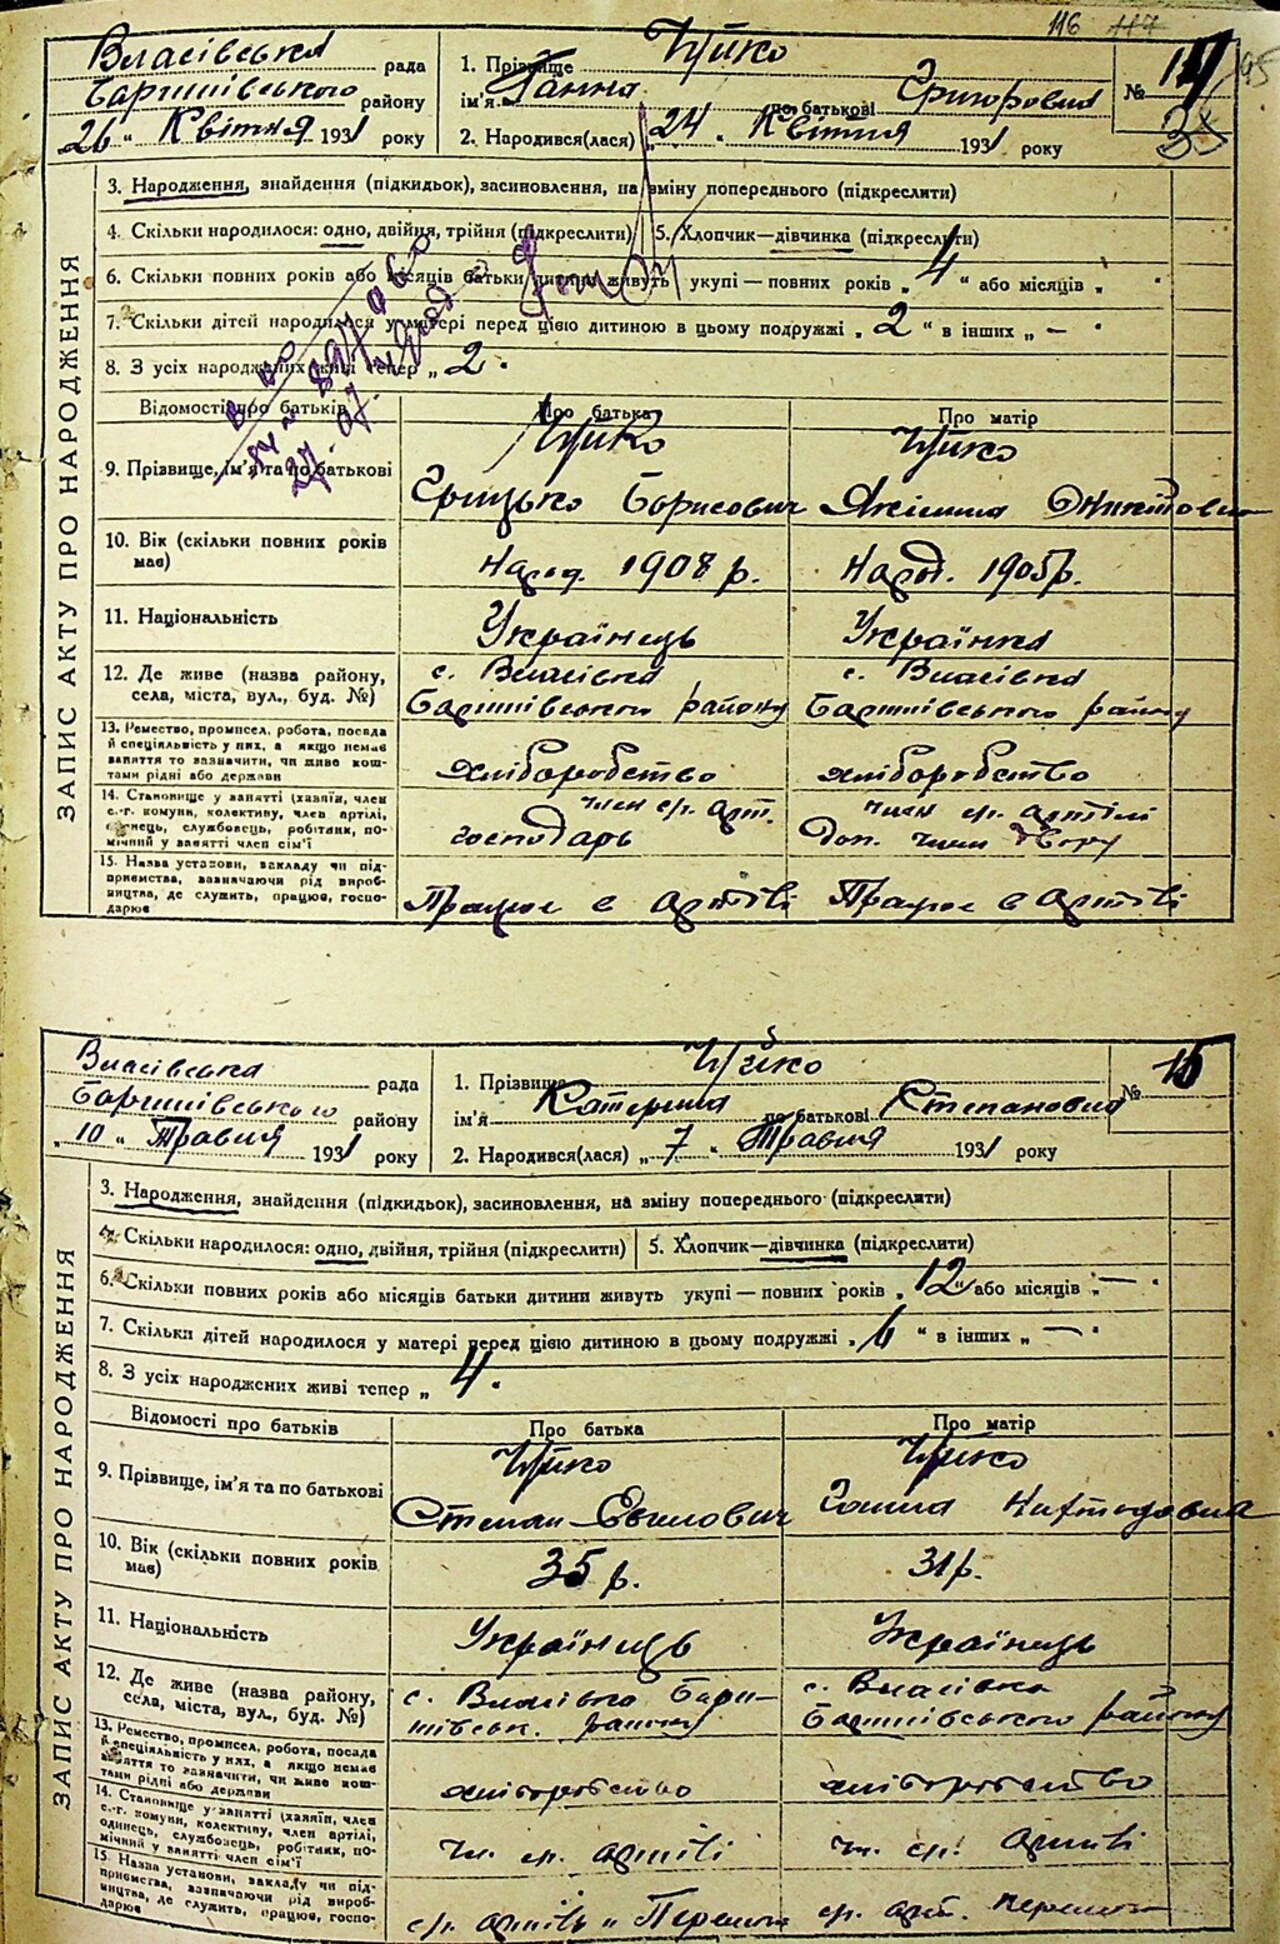 116 117
Власівська рада
Баришівського району
26 " Квітня 1931 року
1. Прізвище Цуйко
ім'я Ганна по батькові Григоровна
2. Народився(лася) „ 24 " Квітня 1931 року
№ 14
95
ЗАПИС АКТУ ПРО НАРОДЖЕННЯ
3. Народження, знайдення (підкидьок), засиновлення, на зміну попереднього (підкреслити)
4. Скільки народилося: одно, двійня, трійня (підкреслити) 5. Хлопчик—дівчинка (підкреслити)
6. Скільки повних років або місяців батьки дитини живуть укупі — повних років „ 4 " або місяців „ "
7. Скільки дітей народилося у матері перед цією дитиною в цьому подружжі „ 2 " в інших „ — "
8. З усіх народжених живі тепер „ 2 "
Відомості про батьків Про батька Про матір
9. Прізвище, ім'я та по батькові
Цуйко Цуйко
Грицько Борисович
10. Вік (скільки повних років має)
Народ. 1908 р. Народ. 1905 р.
11. Національність
Українець Українка
12. Де живе (назва району, села, міста, вул., буд. №)
с. Власівка с. Власівка
Баришівського району Баришівського району
13. Ремество, промисел, робота, посада й спеціяльність у них, а якщо немає заняття то зазначити, чи живе коштами рідні або держави
хліборобство хліборобство
14. Становище у занятті (хазяїн, член с.-г. комуни, колективу, член артілі, одинець, службовець, робітник, помічний у занятті член сім'ї
член с/г. арт. член с/г. артілі
господарь Доп. член двору
15. Назва установи, закладу чи підприємства, зазначаючи рід виробництва, де служить, працює, господарює
Працює в артілі Працює в артілі
Власівська рада
Баришівського району
„ 10 " Травня 1931 року
1. Прізвище Цуйко
ім'я Катерина по батькові Степановна
2. Народився(лася) „ 7 " Травня 1931 року
№ 15
ЗАПИС АКТУ ПРО НАРОДЖЕННЯ
3. Народження, знайдення (підкидьок), засиновлення, на зміну попереднього (підкреслити)
4. Скільки народилося: одно, двійня, трійня (підкреслити) 5. Хлопчик—дівчинка (підкреслити)
6. Скільки повних років або місяців батьки дитини живуть укупі — повних років „ 12 " або місяців „ — "
7. Скільки дітей народилося у матері перед цією дитиною в цьому подружжі „ 6 " в інших „ — "
8. З усіх народжених живі тепер „ 4 "
Відомості про батьків Про батька Про матір
9. Прізвище, ім'я та по батькові
Цуйко Цуйко
Степан Ганна
10. Вік (скільки повних років має)
35 р. 31 р.
11. Національність
Українець Українець
12. Де живе (назва району, села, міста, вул., буд. №)
с. Власівка Бари- с. Власівка
шівськ. району Баришівського району
13. Ремество, промисел, робота, посада й спеціяльність у них, а якщо немає заняття то зазначити, чи живе коштами рідні або держави
хліборобство хліборобство
14. Становище у занятті (хазяїн, член с.-г. комуни, колективу, член артілі, одинець, службовець, робітник, помічний у занятті член сім'ї
чл. с/г. артілі чл. с/г. артілі
15. Назва установи, закладу чи підприємства, зазначаючи рід виробництва, де служить, працює, господарює
с/г. артіль с/г. арт.